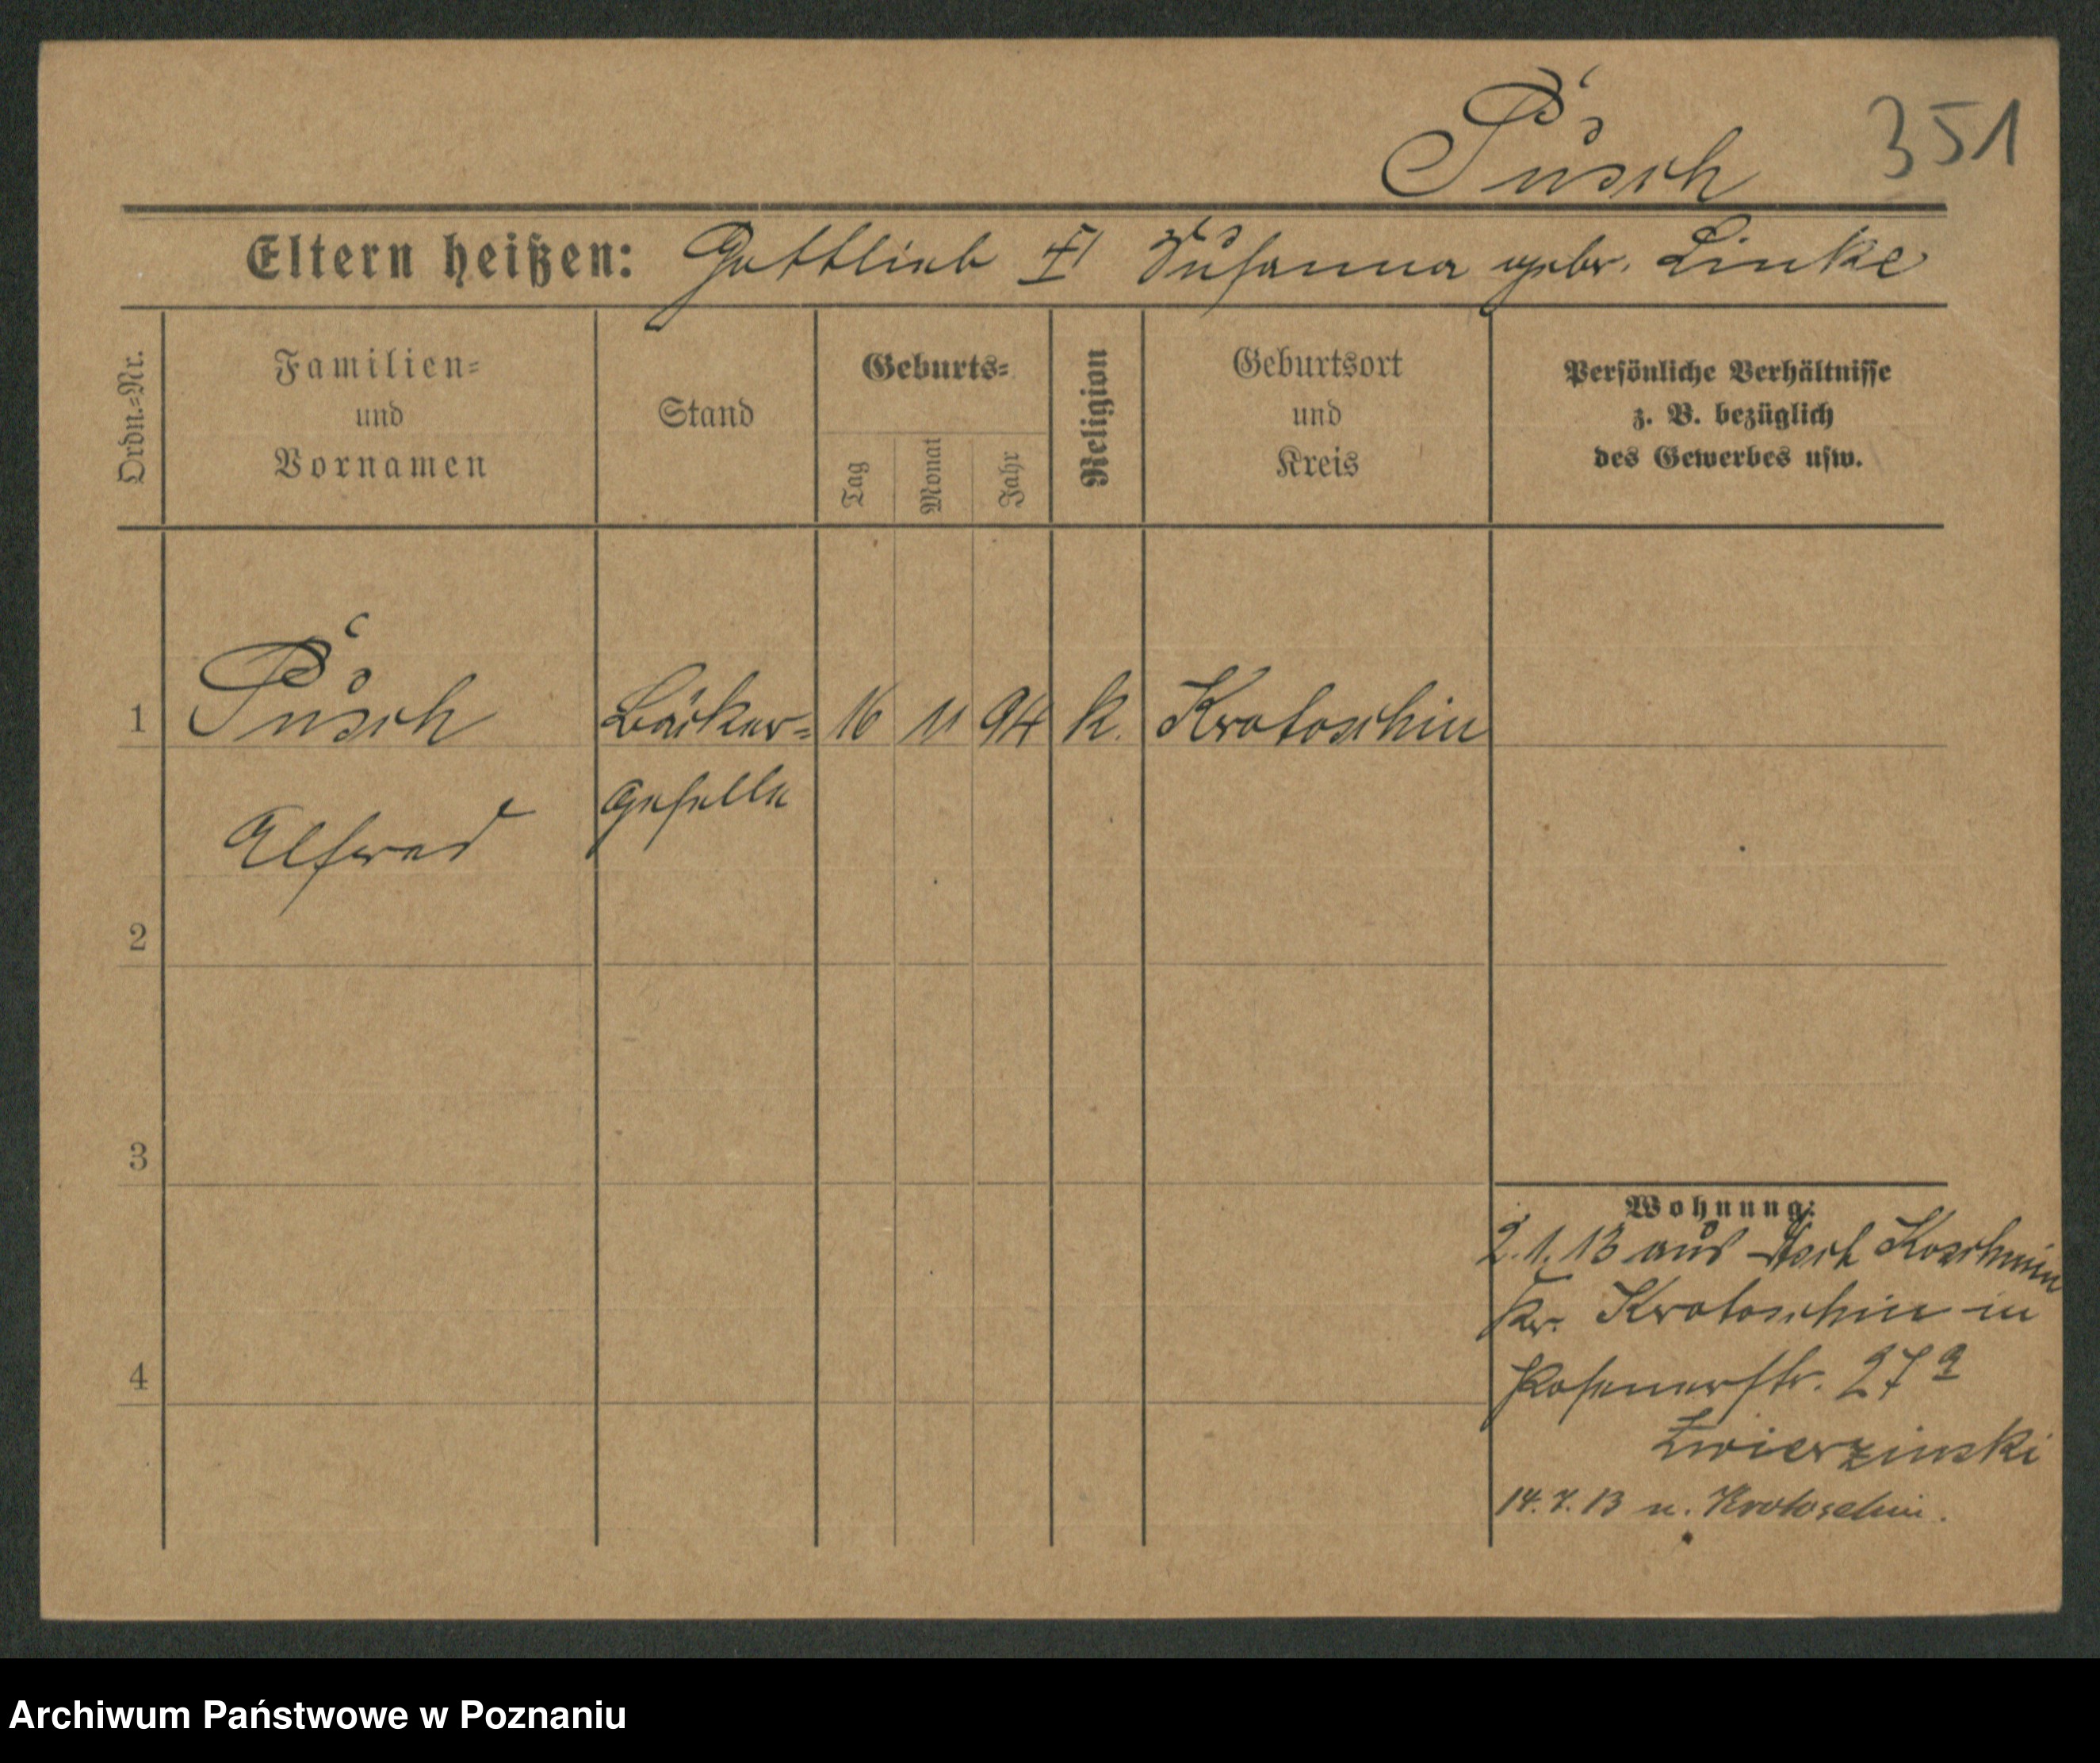 351
Pusch
Eltern heißen: Gottlieb Susanna gebr. Linke
Ordn.=Nr.
Familien=
und
Vornamen
Stand
Geburts=
Tag
Monat
Jahr
Religion
Geburtsort
und
Kreis
Persönliche Verhältnisse
z. B. bezüglich
des Gewerbes usw.
1 Pusch Bäcker= 16 11 94 k. Krotoschin
geselle
Alfred
2
3
4
Wohnung:
2.1.13 aus Koschmin
Kr. Krotoschin in
Posenerstr. 27a
Zwierzinski
14.7.13 n. Krotoschin.
Archiwum Państwowe w Poznaniu